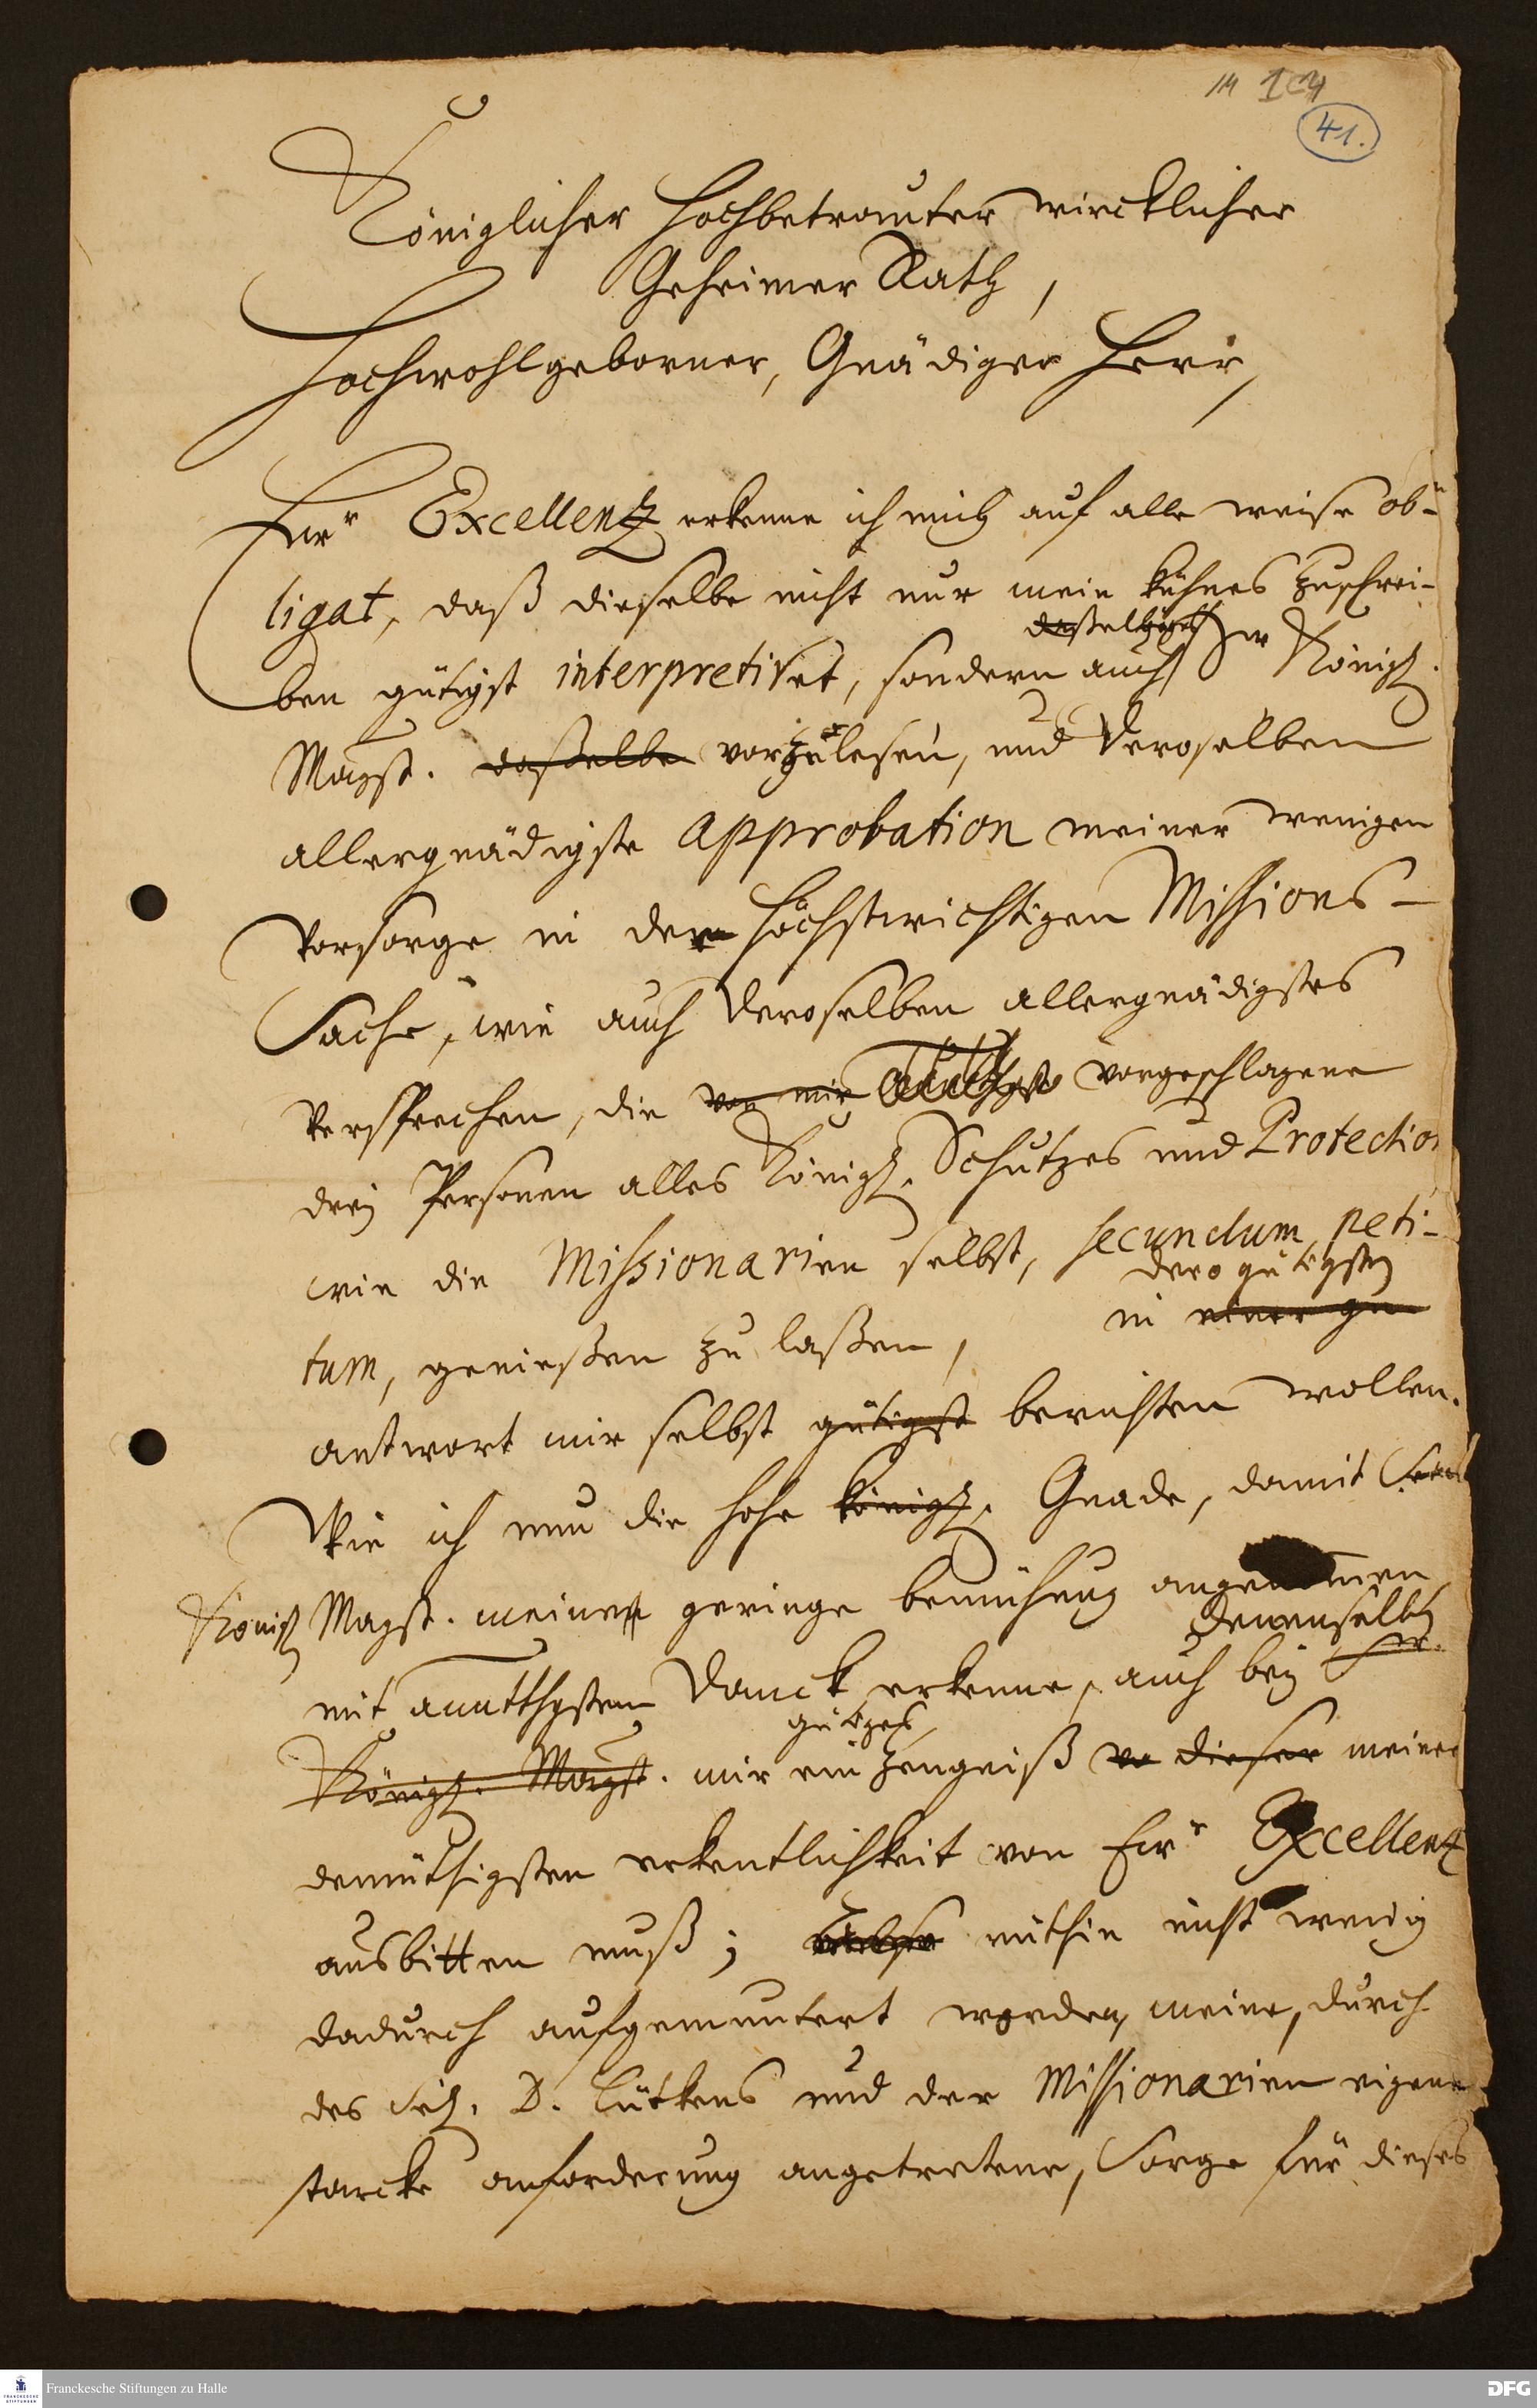 104
41.
Königlicher Hochbetrauter wircklicher
Geheimer Rath,
Hochwohlgeborner, Gnädiger Herr,
Ewr Excellentz erkenne ich mich auf alle weise ob-
ligat, daß dieselbe nicht nur mein kühnes zuschrei-
ben gütigst interpretiret, sondern auch Sr Königl.
Mayst. daßelbe vorzulesen, und Deroselben
allergnädigste Approbation meiner wenigen
Vorsorge in der höchstwichtigen Missions-
Sache, wie auch Deroselben allergnädigstes
Versprechen, die von mir vorgeschlagene
drey Personen alles Königl. Schutzes und Protection
wie die Missionarien selbst, secundum peti-
dero gütigsten
tum, genießen zu laßen, in einer gu
antwort mir selbst gütigst berichten wollen.
Wie ich nun die hohe Königl. Gnade, damit
Königl Mayst. meine geringe bemühung angenommen
denenselben
mit Danck erkenne, auch bey Sr.
gütiges
Königl. Mayst. mir ein Zeugniß dieser meiner
demüthigsten erkentlichkeit von Ewr Excellentz
ausbitten muß; mithin nicht wenig
dadurch aufgemuntert worden, meine, durch
des Sel. D. Lütkens und der Missionarien eigene
starcke anforderung angetretene, Sorge für dieses
Franckesche Stiftungen zu Halle
FRANCKESCHE
STIFTUNGEN
DFG